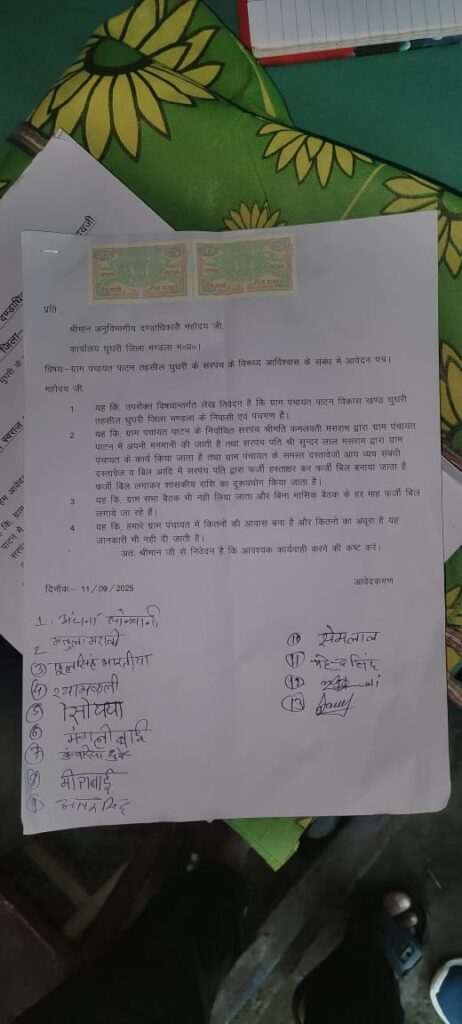 भारत
INDIA
FIVE RUPEES
भारत
INDIA
FIVE RUPEES
प्रति ,
श्रीमान अनुविभागीय दण्डाधिकारी महोदय जी,
कार्यालय घुघरी जिला मण्डला म०प्र०।
विषयः–ग्राम पंचायत पाटन तहसील घुघरी के सरपंच के विरूध्द आविश्वास के संबंध में आवेदन पत्र।
महोदय जी,
1 यह कि, उपरोक्त विषयान्तर्गत लेख निवेदन है कि ग्राम पंचायत पाटन विकास खण्ड घुघरी
तहसील घुघरी जिला मण्डला के निवासी एवं पंचगण है।
2 यह कि, ग्राम पंचायत पाटन के निर्वाचित सरपंच श्रीमति कमलवती मसराम द्वारा ग्राम पंचायत
पाटन में अपनी मनमानी की जाती है तथा सरपंच पति श्री सुन्दर लाल मसराम द्वारा ग्राम
पंचायत के कार्य किया जाता है तथा ग्राम पंचायत के समस्त दस्तावेजो आय व्यय संबंधी
दस्तावेज व बिल आदि में सरपंच पति द्वारा फर्जी हस्ताक्षर कर फर्जी बिल बनाया जाता है
फर्जी बिल लगाकर शासकीय राशि का दुरूपयोग किया जाता है।
3 यह कि, ग्राम सभा बैठक भी नही लिया जाता और बिना मासिक बैठक के हर माह फर्जी बिल
लगाये जा रहे है।
4 यह कि, हमारे ग्राम पंचायत में कितनो की आवास बना है और कितनो का अधूरा है यह
जानकारी भी नही दी जाती है।
अतः श्रीमान जी से निवेदन है कि आवश्यक कार्यवाही करने की कष्ट करे।
दिनांकः– 11/09/2025
आवेदकगण
1. अंचना सोनवानी
2 मरावी
③ फूलसिंह भारतीया
④ श्यामकली
⑤ सिया
⑥ मंगली बाई
⑦
⑧ मीराबाई
⑨ सिंह
⑩ सेमलाल
⑪ सिंह
⑫
⑬